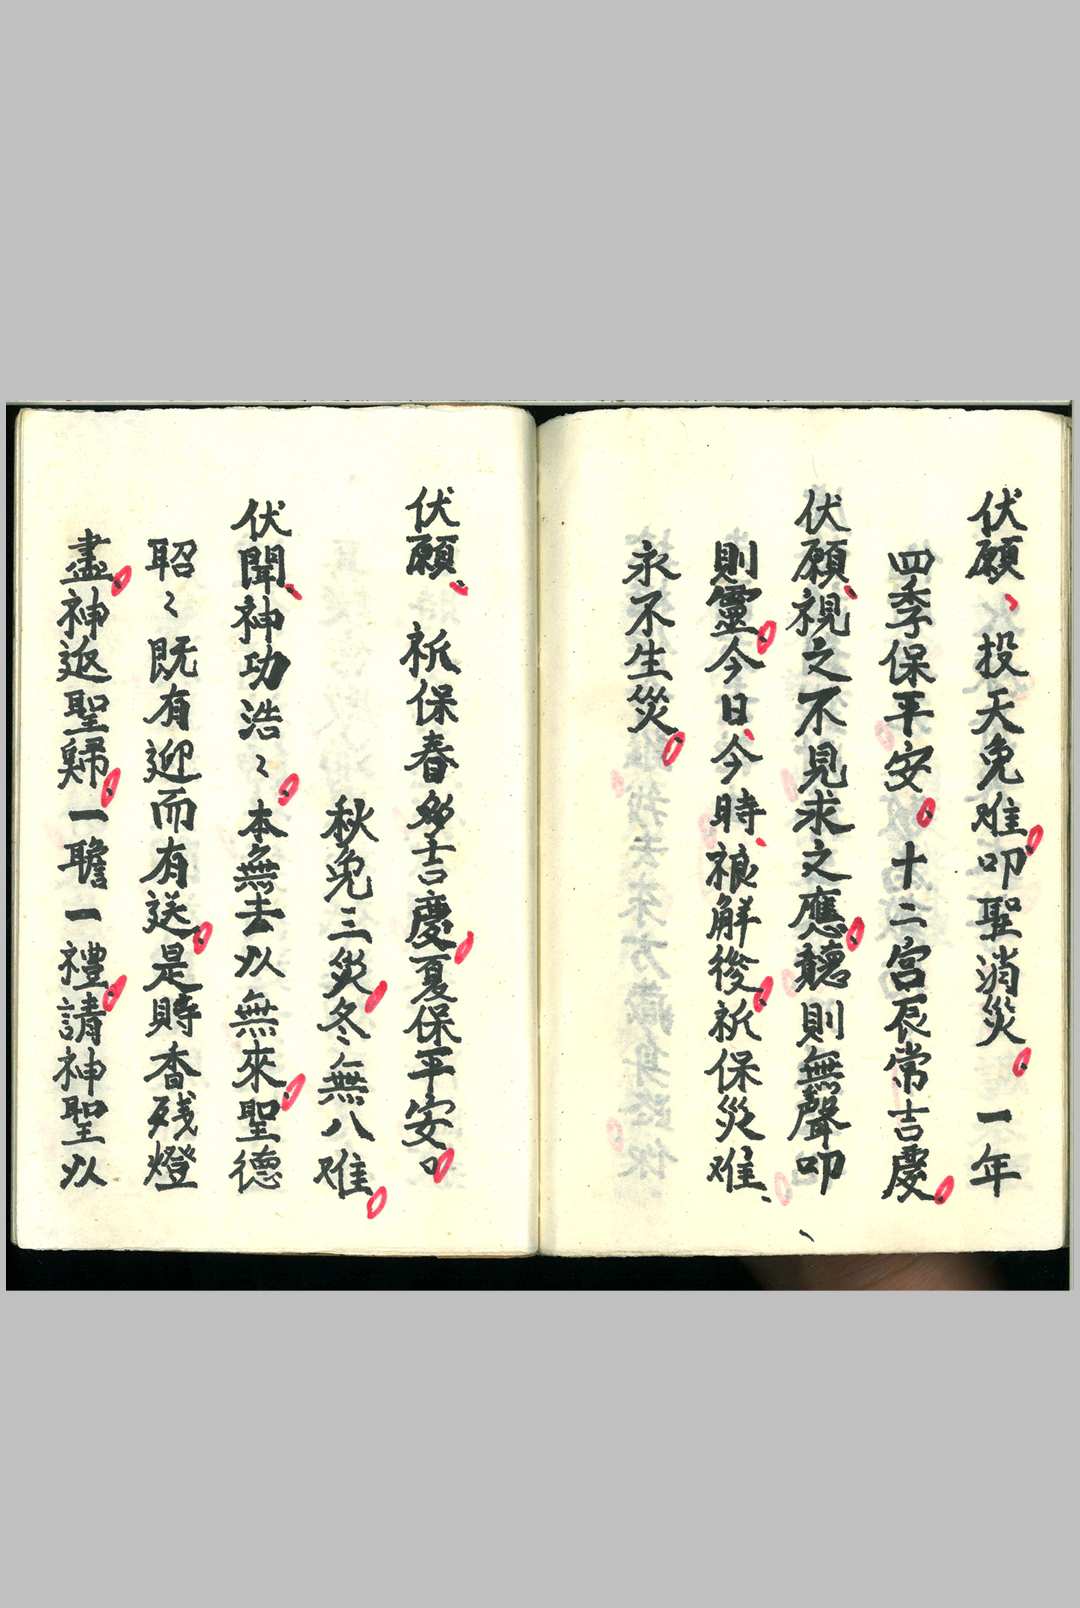 伏願、投天免难叩聖消災一年
四季保平安十二宮辰常吉慶
伏願、視之不見求之應聽則無聲叩
則靈今日、今時、禳解後祈保災难、
永不生災
伏願、祈保春多吉慶夏保平安
秋免三災冬無八难
伏聞、神功浩〻本無去以無來聖德
昭〻既有迎而有送是時香残燈
盡神返聖歸一瞻一禮請神聖以